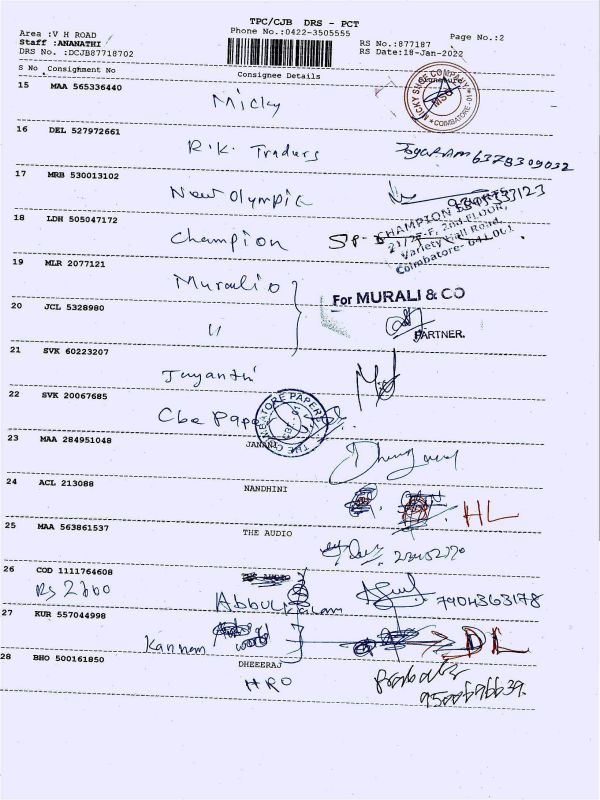 TPC/CJB DRS - PCT
Area :V H ROAD
Phone No.:0422-3505555
Page No.:2
Staff :ANANATHI
RS No.:877187
DRS No. :DCJB87718702
RS Date:18-Jan-2022
S No Consignment No
Consignee Details
15 MAA 565336440
Micky
MICKY SHOE COMPANY
MSC
COIMBATORE-01
16 DEL 527972661
R.K. Traders
6378309032
17 MRB 530013102
New Olympic
18 LDH 505047172
Champion
CHAMPION
21/25-F, 2nd FLOOR,
Variety Hall Road,
Coimbatore- 641 001.
19 MLR 2077121
Murali
For MURALI & CO
20 JCL 5328980
"
PARTNER.
21 SVK 60223207
Jayanthi
22 SVK 20067685
Cbe Paper
THE COIMBATORE PAPER
23 MAA 284951048
JANANI
24 ACL 213088
NANDHINI
HL
25 MAA 563861537
THE AUDIO
26 COD 1111764608
Rs 2700
Abbul Kalam
7904363178
27 KUR 557044998
Kannam
DL
28 BHO 500161850
DHEEERAJ
HRO
9500696639